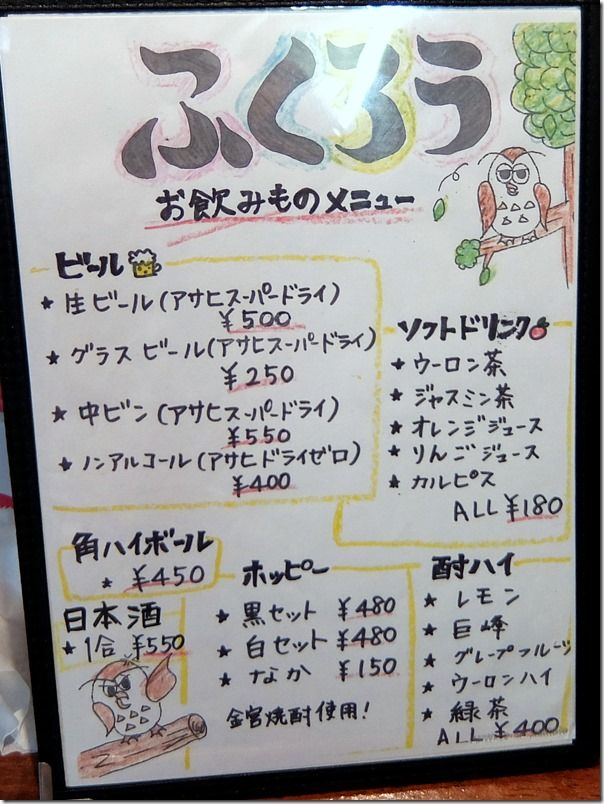 ふくろう
お飲みものメニュー
ビール
★ 生ビール(アサヒスーパードライ)
¥500
★ グラスビール(アサヒスーパードライ)
¥250
★ 中ビン(アサヒスーパードライ)
¥550
★ ノンアルコール(アサヒドライゼロ)
¥400
ソフトドリンク
★ ウーロン茶
★ ジャスミン茶
★ オレンジジュース
★ りんごジュース
★ カルピス
ALL ¥180
角ハイボール
★ ¥450
日本酒
★ 1合 ¥550
ホッピー
★ 黒セット ¥480
★ 白セット ¥480
★ なか ¥150
金宮焼酎使用!
酎ハイ
★ レモン
★ 巨峰
★ グレープフルーツ
★ ウーロンハイ
★ 緑茶
ALL ¥400